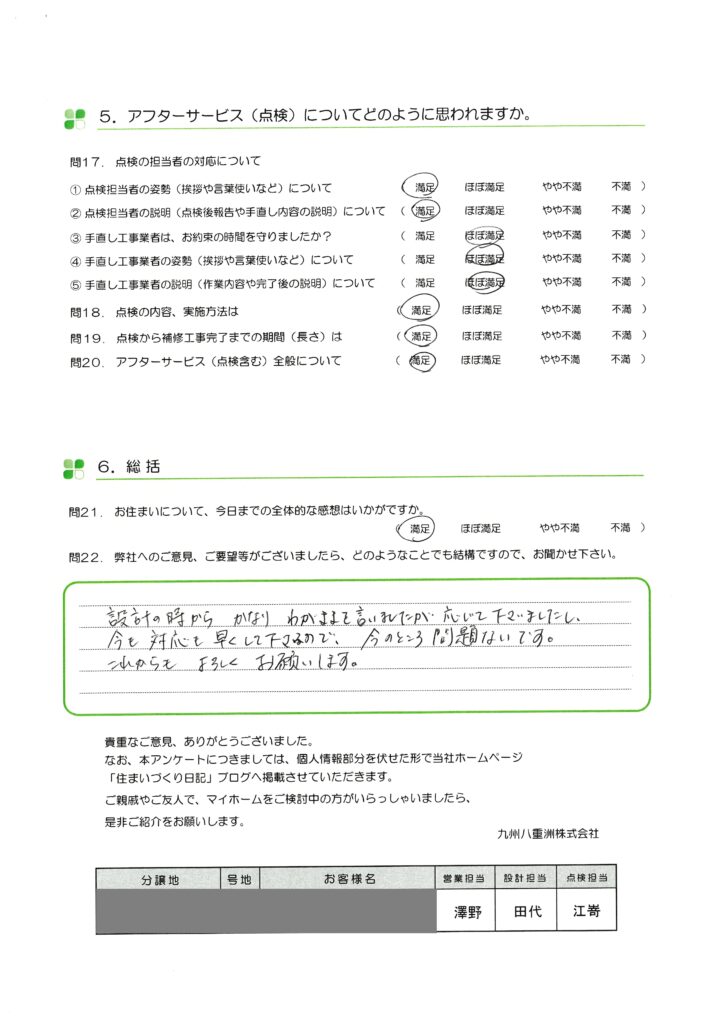 5．アフターサービス（点検）についてどのように思われますか。
問17．点検の担当者の対応について
① 点検担当者の姿勢（挨拶や言葉使いなど）について （ 満足 ほぼ満足 やや不満 不満 ）
② 点検担当者の説明（点検後報告や手直し内容の説明）について （ 満足 ほぼ満足 やや不満 不満 ）
③ 手直し工事業者は、お約束の時間を守りましたか？ （ 満足 ほぼ満足 やや不満 不満 ）
④ 手直し工事業者の姿勢（挨拶や言葉使いなど）について （ 満足 ほぼ満足 やや不満 不満 ）
⑤ 手直し工事業者の説明（作業内容や完了後の説明）について （ 満足 ほぼ満足 やや不満 不満 ）
問18．点検の内容、実施方法は （ 満足 ほぼ満足 やや不満 不満 ）
問19．点検から補修工事完了までの期間（長さ）は （ 満足 ほぼ満足 やや不満 不満 ）
問20．アフターサービス（点検含む）全般について （ 満足 ほぼ満足 やや不満 不満 ）
6．総括
問21．お住まいについて、今日までの全体的な感想はいかがですか。
（ 満足 ほぼ満足 やや不満 不満 ）
問22．弊社へのご意見、ご要望等がございましたら、どのようなことでも結構ですので、お聞かせ下さい。
設計の時から かなり わがままを言いましたが 応じて下さいましたし、
今も 対応も 早くして下さるので、 今のところ 問題ないです。
これからも よろしく お願いします。
貴重なご意見、ありがとうございました。
なお、本アンケートにつきましては、個人情報部分を伏せた形で当社ホームページ
「住まいづくり日記」ブログへ掲載させていただきます。
ご親戚やご友人で、マイホームをご検討中の方がいらっしゃいましたら、
是非ご紹介をお願いします。
九州八重洲株式会社
分譲地 号地 お客様名 営業担当 設計担当 点検担当
澤野 田代 江嵜